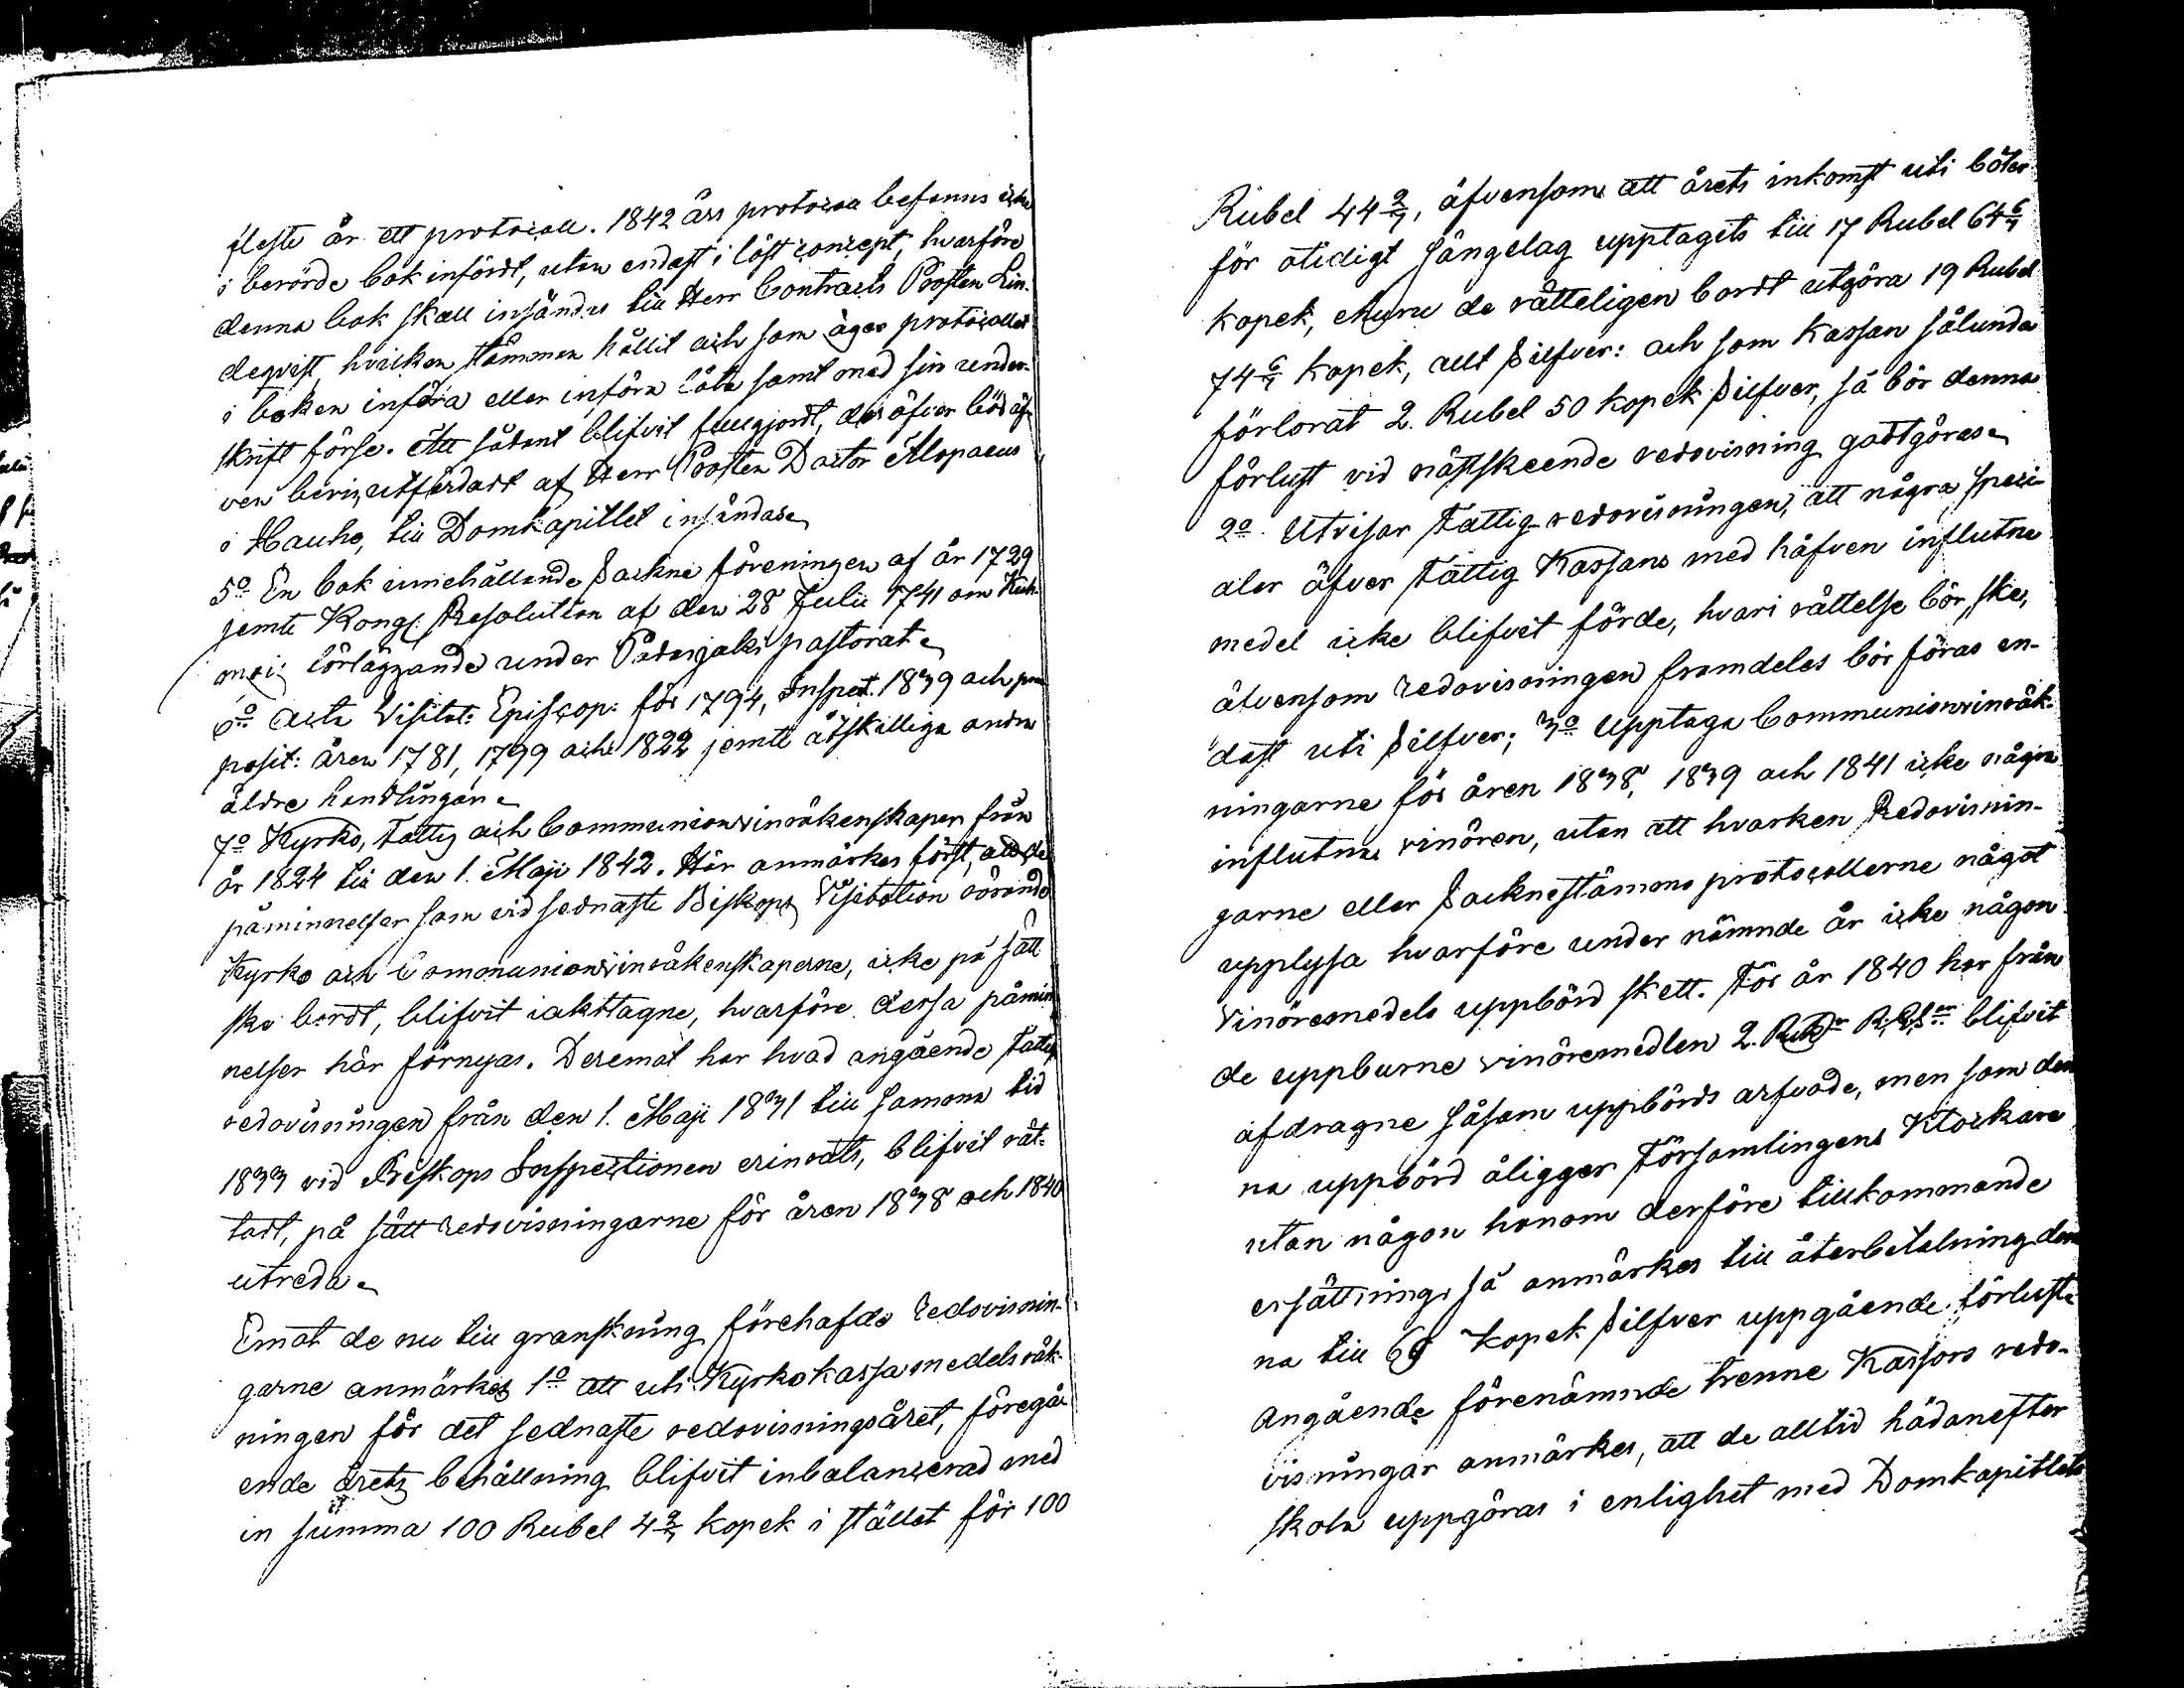 fleste år ett protocoll. 1842 års protocoll befanns icke
i berörde bok infördt, utan endast i löst concept, hvarföre
denna bok skall insändas till Herr Contracts Prosten Lin-
deqvist, hvilken stämman hållit och som äger protocollet
i boken införa eller införa låta samt med sin under-
skrift förse. Att sådant blifvit fullgjordt, deröfver bör äf-
ven bevis, utfärdadt af Herr Prosten Doctor Alopaeus
i Hauho, till Domkapitlet insändas.
5o En bok innehållande Sockne föreningen af år 1729
jemte Kongl. Resolution af den 28 Julii 1741 om Kuh-
mois lörläggande under Padasjoki pastorat.
6o Acta Visitat: Episcop: för 1794, Inspect. 1839 och præ
posit: åren 1781, 1799 och 1822 jemte åtskilliga andra
äldre handlingar.
7o Kyrko, Fattig och Communionvinräkenskaper från
år 1824 till den 1. Maji 1842. Här anmärkes först, att de
påminnelser som vid sednaste Biskops Visitation rörande
Kyrko och Communionvinräkenskaperne, icke på sätt
ske bordt, blifvit iakttagne, hvarföre dessa påmin
nelser här förnyas. Deremot har hvad angående Fattig
redovisningen från den 1. Maji 1831 till samma tid
1833 vid Biskops Inspectionen erinrats, blifvit rät-
tadt, på sätt redovisningarne för åren 1838 och 1840
utreda.
Emot de nu till granskning förehafde redovisnin-
garne anmärkes 1o att uti Kyrkokassamedelsräk-
ningen för det sednaste redovisningsåret, föregå-
ende årets behållning blifvit inbalancerad med
in summa 100 Rubel 4 2/7 kopek i stället för 100
Rubel 44 2/7, äfvensom att årets inkomst uti böter
för otidigt sängelag upptagits till 17 Rubel 64 6/7
kopek, ehuru de rätteligen bordt utgöra 19 Rubel
74 6/7 kopek, allt Silfver: och som kassan sålunda
förlorat 2. Rubel 50 kopek Silfver, så bör denna
förlust vid nästskeende redovisning godtgöras.
2o. Utvisar Fattig redovisningen, att några speci-
aler öfver Fattig Kassans med håfven influtne
medel icke blifvit förde, hvari rättelse bör ske,
äfvensom redovisningen framdeles bör föras en-
dast uti Silfver; 3o Upptaga Communionvinräk-
ningarne för åren 1838, 1839 och 1841 icke några
influtna vinören, utan att hvarken Redovisnin-
garne eller Socknestämmo protocollerne något
upplysa hvarföre under nämnde år icke någon
Vinöresmedels uppbörd skett. För år 1840 har från
de uppburne vinöremedlen 2. blifvit
afdragne såsom uppbörds arfvode, men som den
na uppbörd åligger Församlingens Klockare
utan någon honom derföre tillkommande
ersättning, så anmärkes till återbetalning den
na till kopek Silfver uppgående förlust.
Angående förenämnde trenne Kassors redo-
visningar anmärkes, att de alltid hädanefter
skola uppgöras i enlighet med Domkapitlets